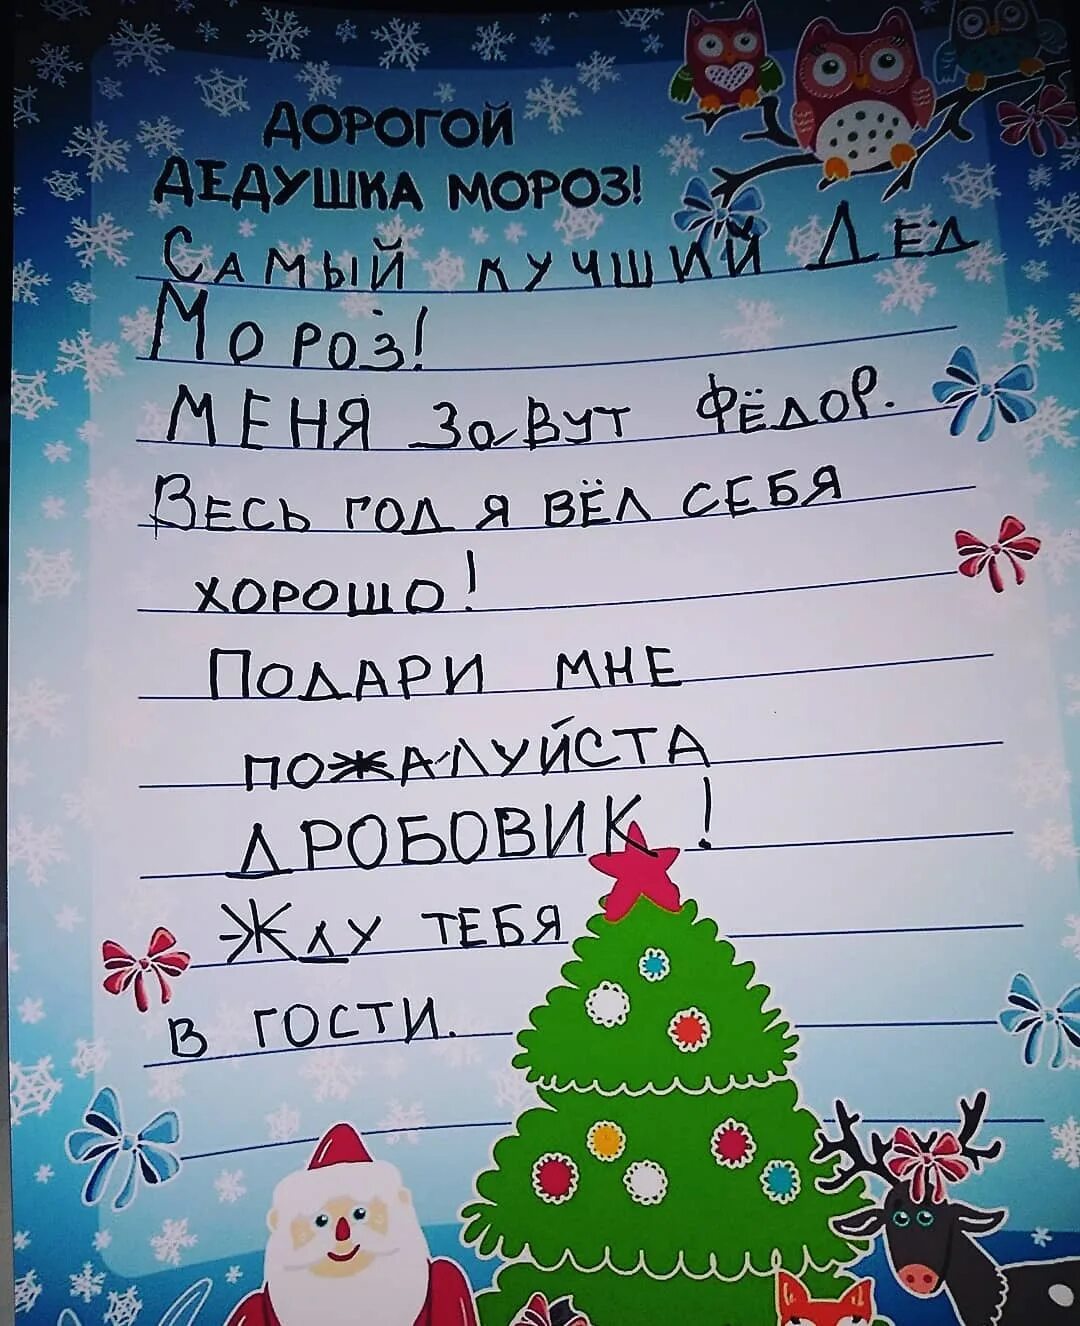 ДОРОГОЙ
ДЕДУШКА МОРОЗ!
Самый лучший Дед
Мороз!
Меня зовут Фёдор.
Весь год я вёл себя
хорошо!
Подари мне
пожалуйста
дробовик!
Жду тебя
в гости.